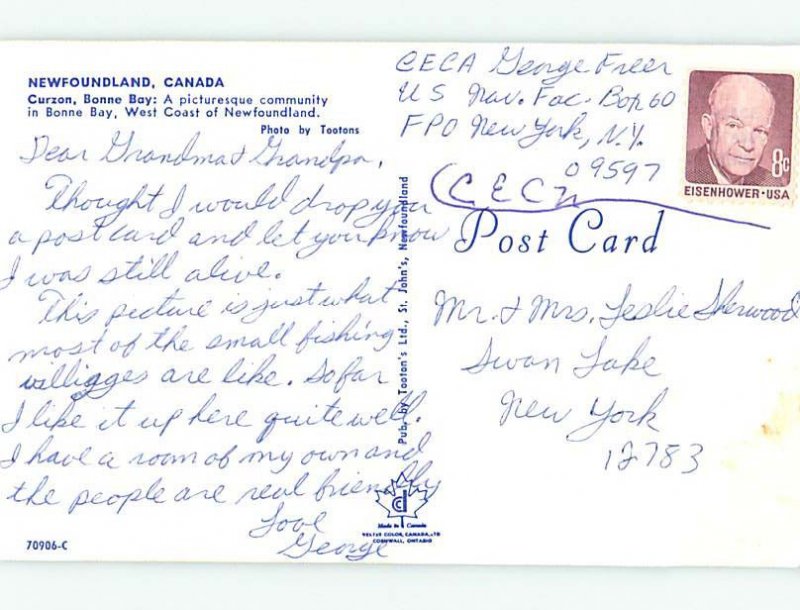 NEWFOUNDLAND, CANADA
Curzon, Bonne Bay: A picturesque community
in Bonne Bay, West Coast of Newfoundland.
Photo by Tootons
Dear Grandma & Grandpa,
Thought I would drop you
a post card and let you know
I was still alive.
This picture is just what
most of the small fishing
williages are like. So far
I like it up here quite well.
I have a room of my own and
the people are real friendly
Love
George
70906-C
Pub. by Tooton's Ltd., St. John's, Newfoundland
Made in Canada
CORNWALL, ONTARIO
CECA George Freer
US Nav. Fac. Box 60
FPO New York, N.Y.
09597
CECN
8c
EISENHOWER·USA
Post Card
Mr. & Mrs. Leslie Sherwood
Swan Lake
New York
12783